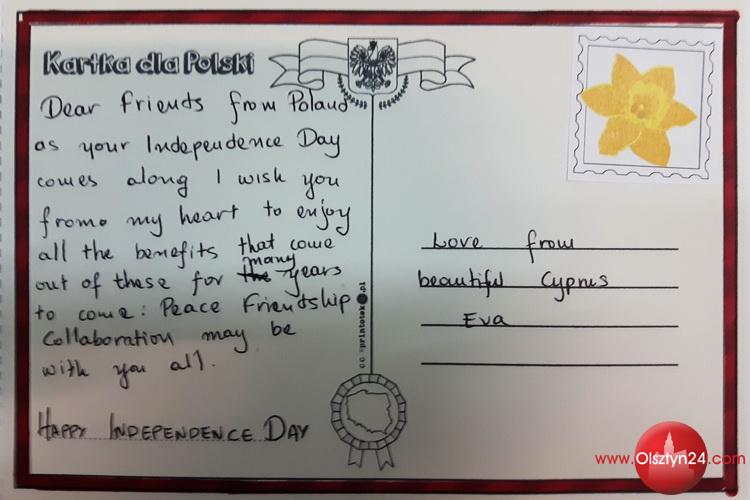 Kartka dla Polski
Dear friends from Poland
as your Independence Day
comes along I wish you
fromo my heart to enjoy
all the benefits that come
out of these for the many years
to come: Peace Friendship
Collaboration may be
with you all.
HAPPY INDEPENDENCE DAY
cc printotek.pl
Love from
beautiful Cyprus
Eva
www.Olsztyn24.com